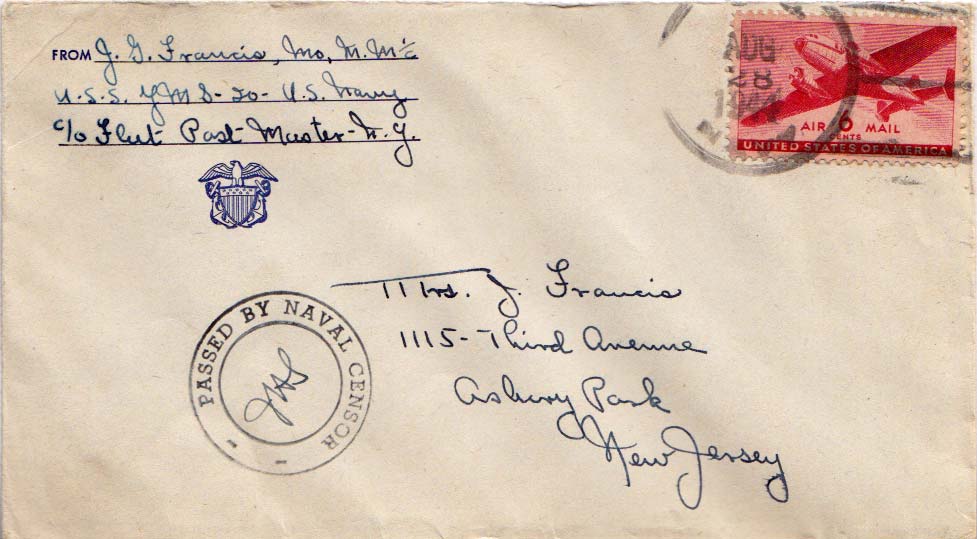 FROM J. G. Francis, Mo. M. M 1/c
U.S.S. YMS-20- U.S. Navy
c/o Fleet Post Master-N.Y.
AUG
28
1944
AIR 6 MAIL
CENTS
UNITED STATES OF AMERICA
Mrs. J. Francis
1115-Third Avenue
Asbury Park
New Jersey
PASSED BY NAVAL CENSOR